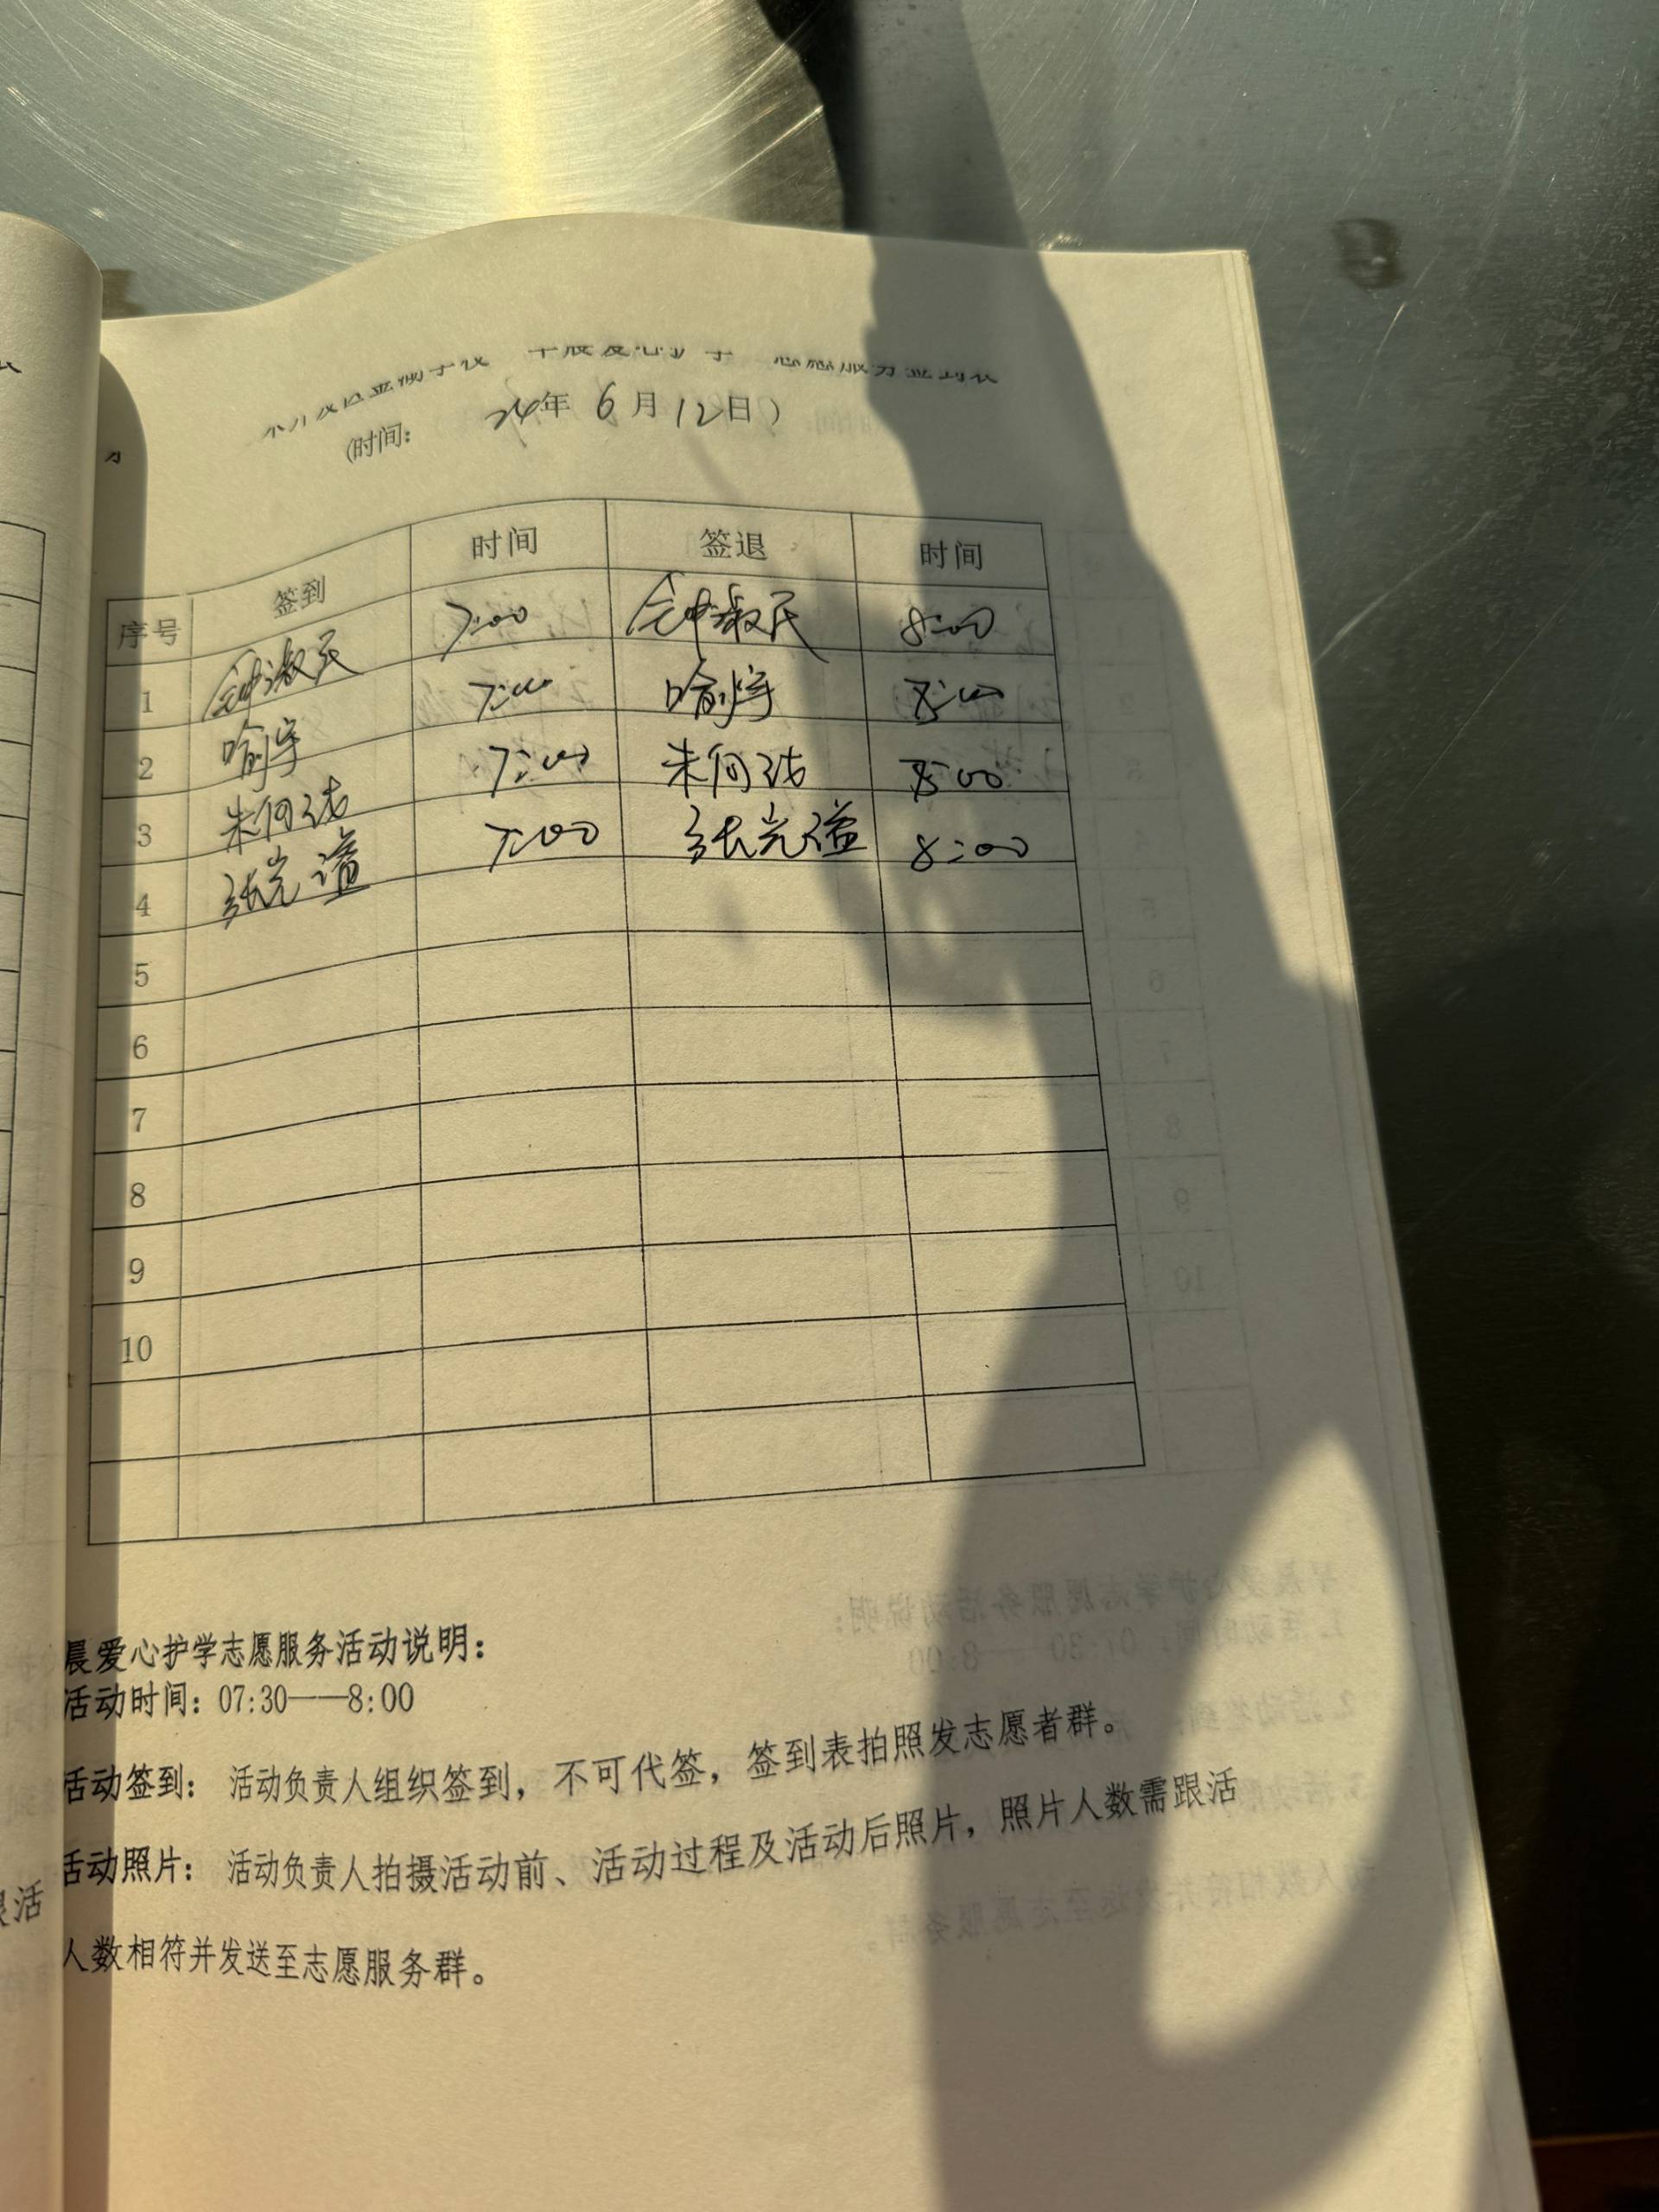 志愿服务签到表
(时间: 24年 6月12日)
序号 签到 时间 签退 时间
1 钟淑民 7:00 钟淑民 8:00
2 喻宇 7:00 喻宇 8:00
3 朱何 7:00 朱何 8:00
4 张光谥 7:00 张光谥 8:00
5
6
7
8
9
10
晨爱心护学志愿服务活动说明:
活动时间: 07:30——8:00
活动签到: 活动负责人组织签到, 不可代签, 签到表拍照发志愿者群。
活动照片: 活动负责人拍摄活动前、活动过程及活动后照片, 照片人数需跟活
人数相符并发送至志愿服务群。